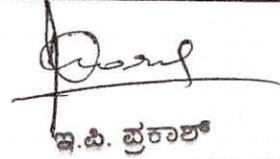 ಇ.ಪಿ. ಪ್ರಕಾಶ್